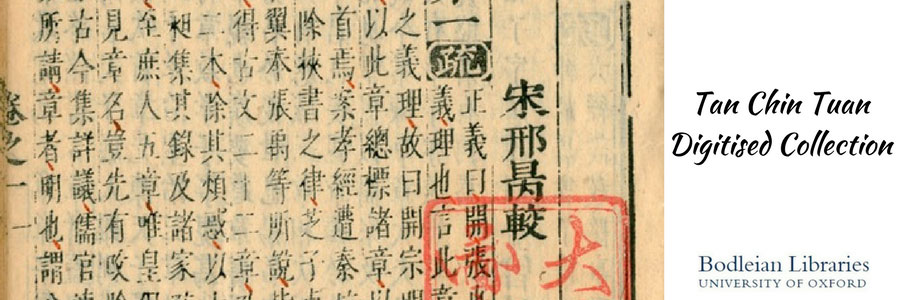 宋邢昺較
一疏
正義曰開張也
義理也言此章
之義理故曰開宗
以此章總標諸章以
首焉案孝經遭秦
除挾書之律芝子
翼奉張禹等所說
得古文二十二章
二本除其煩惑以
昶集其錄及諸家
至庶人五章唯皇
見章名豈先有改
古今集詳議儒官
所請章者明也謂
卷之一
大
Tan Chin Tuan
Digitised Collection
Bodleian Libraries
UNIVERSITY OF OXFORD